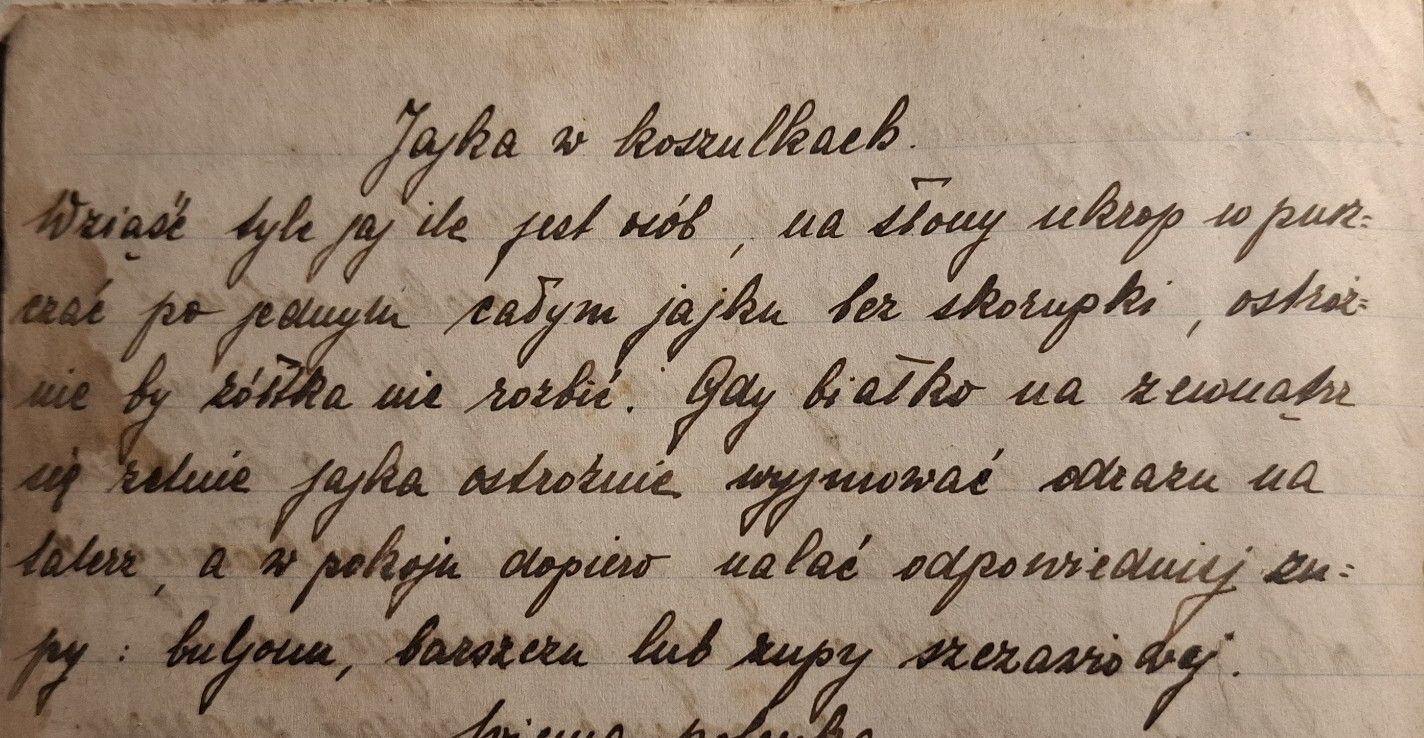 Jajka w koszulkach.
Wziąść tyle jaj ile jest osób, na słony ukrop w pusz=
czać po jednym całym jajku bez skorupki, ostroż=
nie by żółtka nie rozbić. Gdy białko na zewnątrz
się zetnie jajka ostrożnie wyjmować odrazu na
talerz, a w pokoju dopiero nalać odpowiedniej zu=
py : buljonu, barszczu lub zupy szczawiowej.